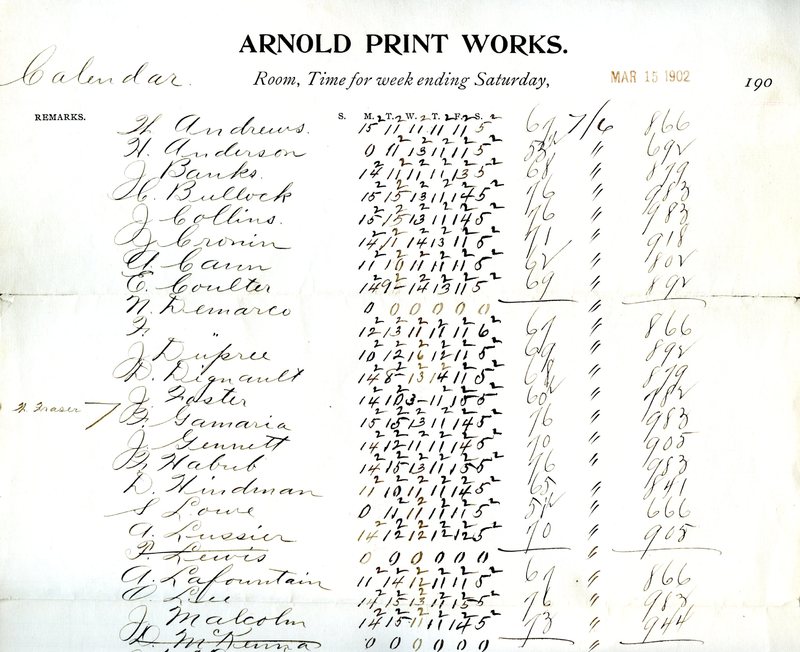 ARNOLD PRINT WORKS.
Calendar. Room, Time for week ending Saturday, MAR 15 1902 190
REMARKS. S. M. T. W. T. F. S.
W. Andrews. 15 11 11 11 11 5 67 7/6 866
H. Anderson 0 11 13 11 11 5 692
J Banks. 14 11 11 11 13 5 68 " 879
H. Bullock 15 15 13 11 14 5 76 " 983
J Collins. 15 15 13 11 14 5 76 " 983
J Cronin 14 11 14 13 11 5 71 " 918
Cann 11 10 11 11 11 5 62 " 802
E. Coulter 14 9- 14 13 11 5 69 " 892
N. Demarco 0 0 0 0 0 0 "
F. " 12 13 11 11 11 6 67 " 866
J Dupree 10 12 16 12 11 5 69 " 892
D. Dignault 14 8- 13 14 11 5 68 " 879
J Foster 14 10 3- 11 15 5 " 782
H. Fraser F. Gamaria 15 15 13 11 14 5 76 " 983
J. Gennett 14 12 11 11 14 5 70 " 905
F. Habub 14 15 13 11 15 5 76 " 983
D. Hindman 11 10 11 11 14 5 65 " 841
S Lowe 0 11 11 11 11 5 " 666
A. Lussier 14 12 12 12 12 5 70 " 905
P. Lewis 0 0 0 0 0 0 "
A. Lafountain 11 14 12 11 11 5 67 " 866
E Lee 14 15 13 11 15 5 76 " 983
J Malcolm 14 15 11 11 14 5 73 " 944
D. McKenna 0 0 0 0 0 0 "